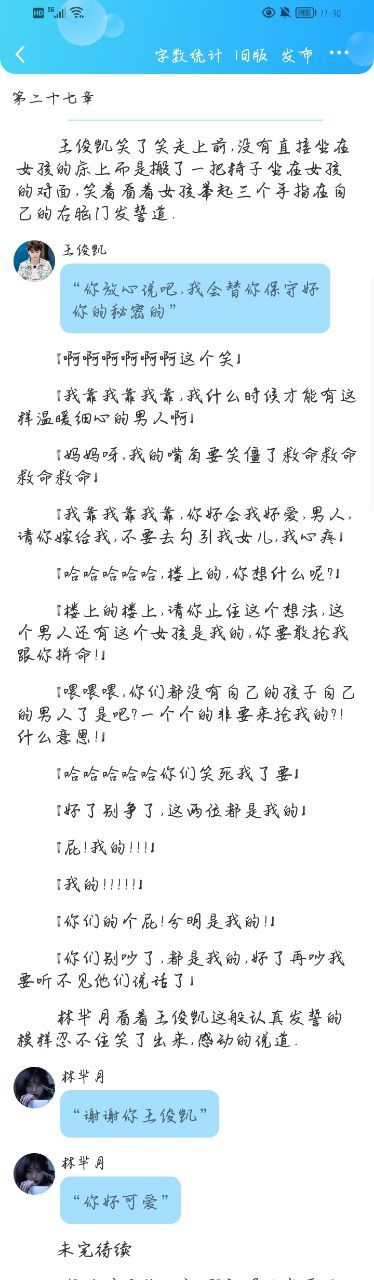 HD 5G 11:30
字数统计 旧版 发布 ···
第二十七章
王俊凯笑了笑走上前,没有直接坐在
女孩的床上而是搬了一把椅子坐在女孩
的对面,笑着看着女孩举起三个手指在自
己的右脑门发誓道.
王俊凯
“你放心说吧,我会替你保守好
你的秘密的”
『啊啊啊啊啊啊这个笑』
『我靠我靠我靠,我什么时候才能有这
样温暖细心的男人啊』
『妈妈呀,我的嘴角要笑僵了救命救命
救命救命』
『我靠我靠我靠,你好会我好爱,男人,
请你嫁给我,不要去勾引我女儿,我心疼』
『哈哈哈哈哈,楼上的,你想什么呢?』
『楼上的楼上,请你止住这个想法,这
个男人还有这个女孩是我的,你要敢抢我
跟你拼命!』
『喂喂喂,你们都没有自己的孩子自己
的男人了是吧?一个个的非要来抢我的?!
什么意思!』
『哈哈哈哈哈你们笑死我了要』
『好了别争了,这两位都是我的』
『屁!我的!!!』
『我的!!!!!』
『你们的个屁!分明是我的!』
『你们别吵了,都是我的,好了再吵我
要听不见他们说话了』
林芈月看着王俊凯这般认真发誓的
模样忍不住笑了出来,感动的说道.
林芈月
“谢谢你王俊凯”
林芈月
“你好可爱”
未完待续